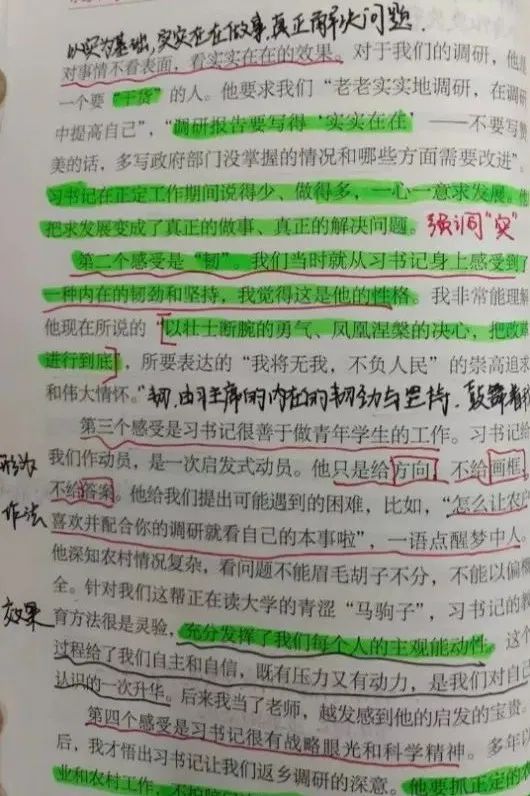 以实为基础,实实在在做事,真正解决问题.
对事情不看表面,看实实在在的效果。对于我们的调研,他是
一个要“干货”的人。他要求我们“老老实实地调研,在调研
中提高自己”,“调研报告要写得‘实实在在’——不要写赞
美的话,多写政府部门没掌握的情况和哪些方面需要改进”。
习书记在正定工作期间说得少、做得多,一心一意求发展。他
把求发展变成了真正的做事、真正的解决问题。 强调“实”
第二个感受是“韧”。我们当时就从习书记身上感受到了
一种内在的韧劲和坚持,我觉得这是他的性格。我非常能理解
他现在所说的“以壮士断腕的勇气、凤凰涅槃的决心,把改革
进行到底”,所要表达的“我将无我,不负人民”的崇高追求
和伟大情怀。 韧,由习主席的内在的韧劲与坚持,鼓舞着
第三个感受是习书记很善于做青年学生的工作。习书记给
我们作动员,是一次启发式动员。他只是给方向,不给画框,
不给答案。他给我们提出可能遇到的困难,比如,“怎么让农民
作法
喜欢并配合你的调研就看自己的本事啦”,一语点醒梦中人。
他深知农村情况复杂,看问题不能眉毛胡子不分,不能以偏概
全。针对我们这帮正在读大学的青涩“马驹子”,习书记的教
效果
育方法很是灵验,充分发挥了我们每个人的主观能动性。这个
过程给了我们自主和自信,既有压力又有动力,是我们对自己
认识的一次升华。后来我当了老师,越发感到他的启发的宝贵。
第四个感受是习书记很有战略眼光和科学精神。多年以
后,我才悟出习书记让我们返乡调研的深意。他要抓正定的农
业和农村工作,不